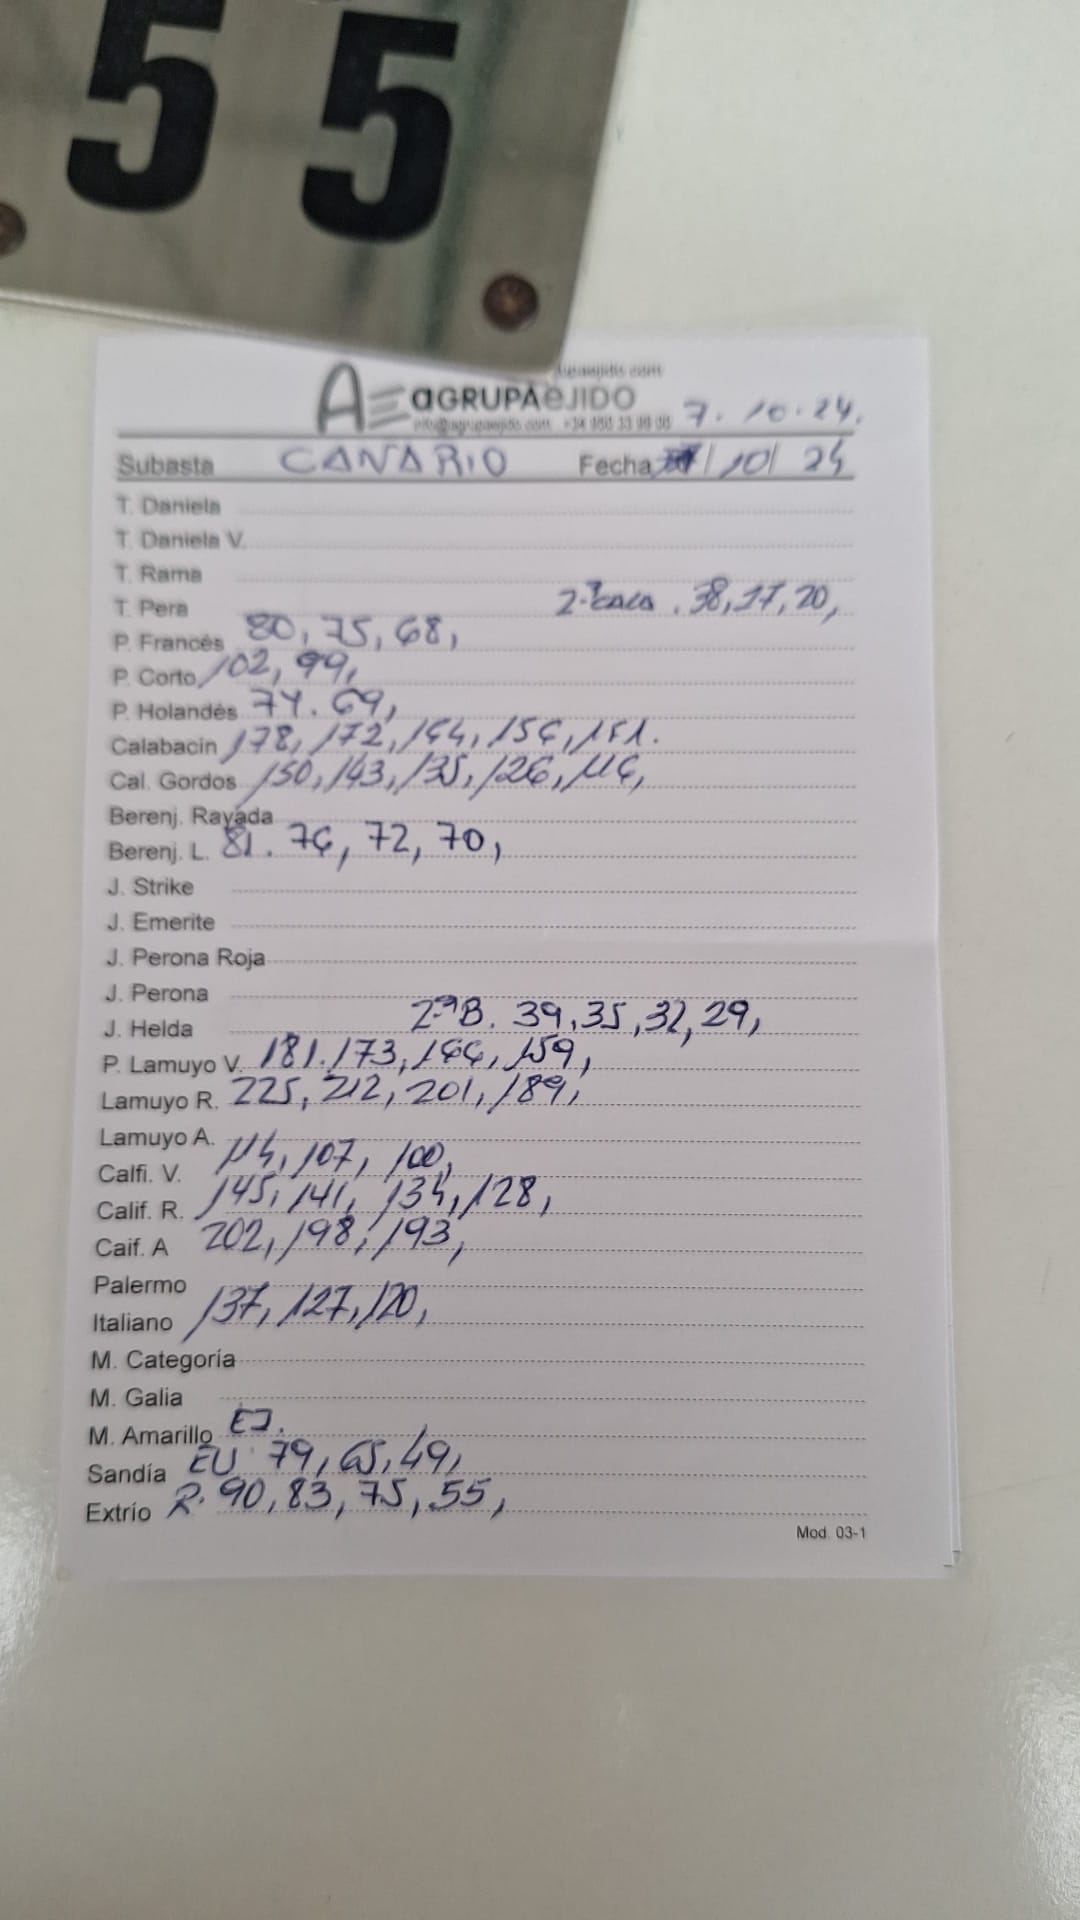 55
AE aGRUPAeJIDO
info@agrupaejido.com +34 950 33 99 06
7. 10. 24.
Subasta CANARIO Fecha 7/10/24
T. Daniela
T. Daniela V.
T. Rama
T. Pera 2ª cala. 38, 17, 20,
P. Francés 80, 75, 68,
P. Corto 102, 99,
P. Holandés 74. 69,
Calabacin 178, 172, 164, 156, 151.
Cal. Gordos 150, 143, 135, 126, 116,
Berenj. Rayada
Berenj. L. 81. 76, 72, 70,
J. Strike
J. Emerite
J. Perona Roja
J. Perona
J. Helda 2ªB. 39, 35, 32, 29,
P. Lamuyo V. 181. 173, 166, 159,
Lamuyo R. 225, 212, 201, 189,
Lamuyo A.
Calfi. V. 114, 107, 100,
Calif. R. 145, 141, 134, 128,
Caif. A 202, 198, 193,
Palermo
Italiano 137, 127, 120,
M. Categoría
M. Galia
M. Amarillo EJ.
Sandía EU 79, 65, 49,
Extrío R. 90, 83, 75, 55,
Mod. 03-1